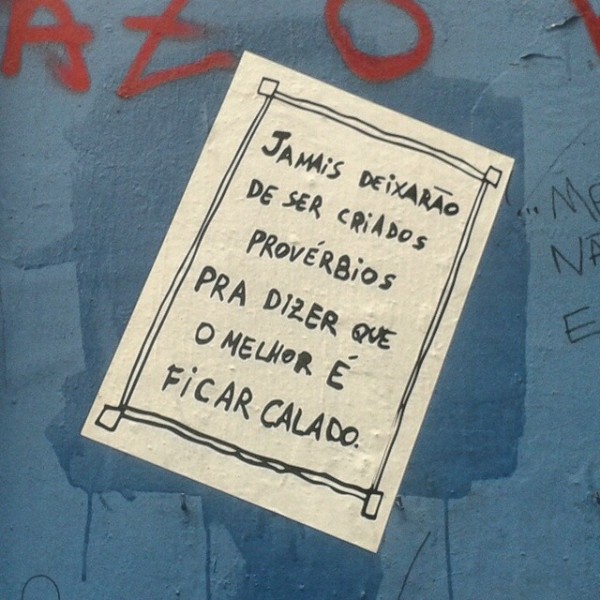 AZO
JAMAIS DEIXARÃO
DE SER CRIADOS
PROVÉRBIOS
PRA DIZER QUE
O MELHOR É
FICAR CALADO.